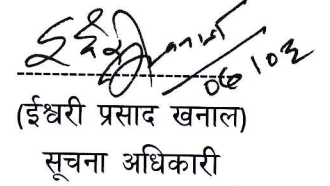 (ईश्वरी प्रसाद खनाल)
सूचना अधिकारी